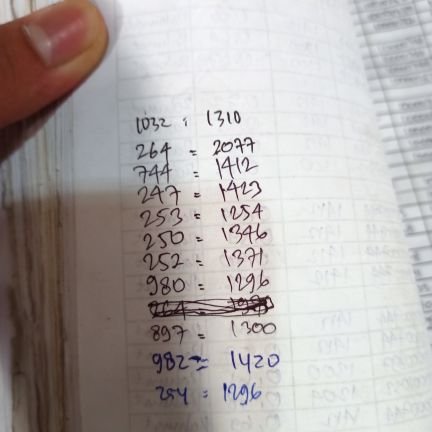 1032 : 1310
264 = 2077
744 = 1412
247 = 1423
253 = 1254
250 = 1346
252 = 1371
980 = 1296
897 = 1300
982 = 1420
254 = 1296